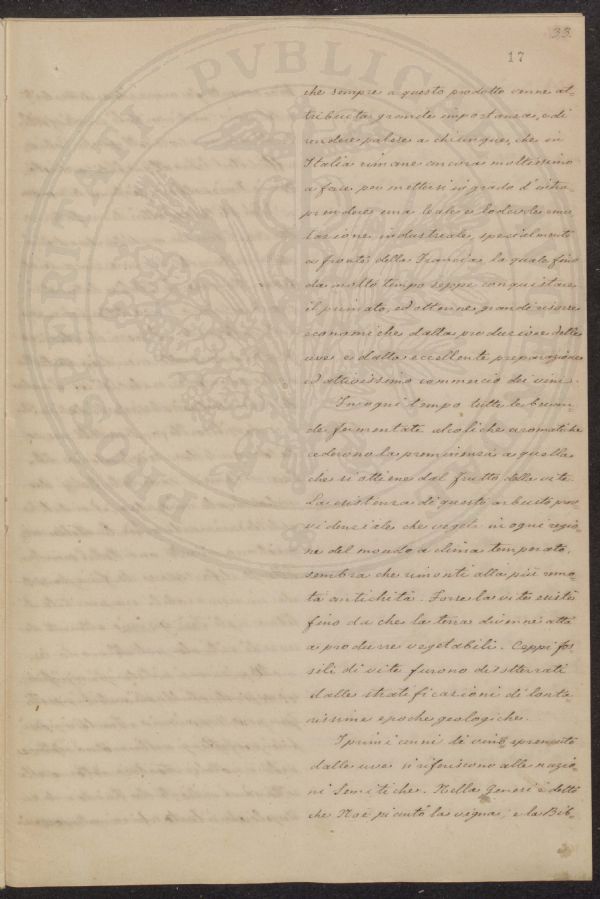 33
17
che sempre a questo prodotto venne at-
tribuita grande importanza, e di
rendere palese a chiunque, che in
Italia rimane ancora moltissimo
a fare per mettersi in grado d'intra-
prendere una leale e lodevole emu-
lazione industriale, specialmente
a fronte della Francia, la quale fino
da molto tempo seppe conquistare
il primato, ed ottenne grandi risorse
economiche dalla produzione delle
uve e dalla eccellente preparazione
ed attivissimo commercio dei vini.
In ogni tempo tutte le bevan-
de fermentate alcoliche aromatiche
cederono la preminenza a quella
che si ottiene dal frutto della vite.
La esistenza di questo arbusto prov-
videnziale che vegeta in ogni regio-
ne del mondo a clima temperato,
sembra che rimonti alla più remo-
ta antichità. Forse la vite esistè
fino da che la terra divenne atta
a produrre vegetabili. Ceppi fos-
sili di vite furono disotterrati
dalle stratificazioni di lonta-
nissime epoche geologiche.
I primi cenni di vino spremuto
dalle uve si riferiscono alle nazio-
ni Semitiche. Nella Genesi è detto
che Noè piantò la vigna, e la Bib-
PROSPERITATI PVBLICAE